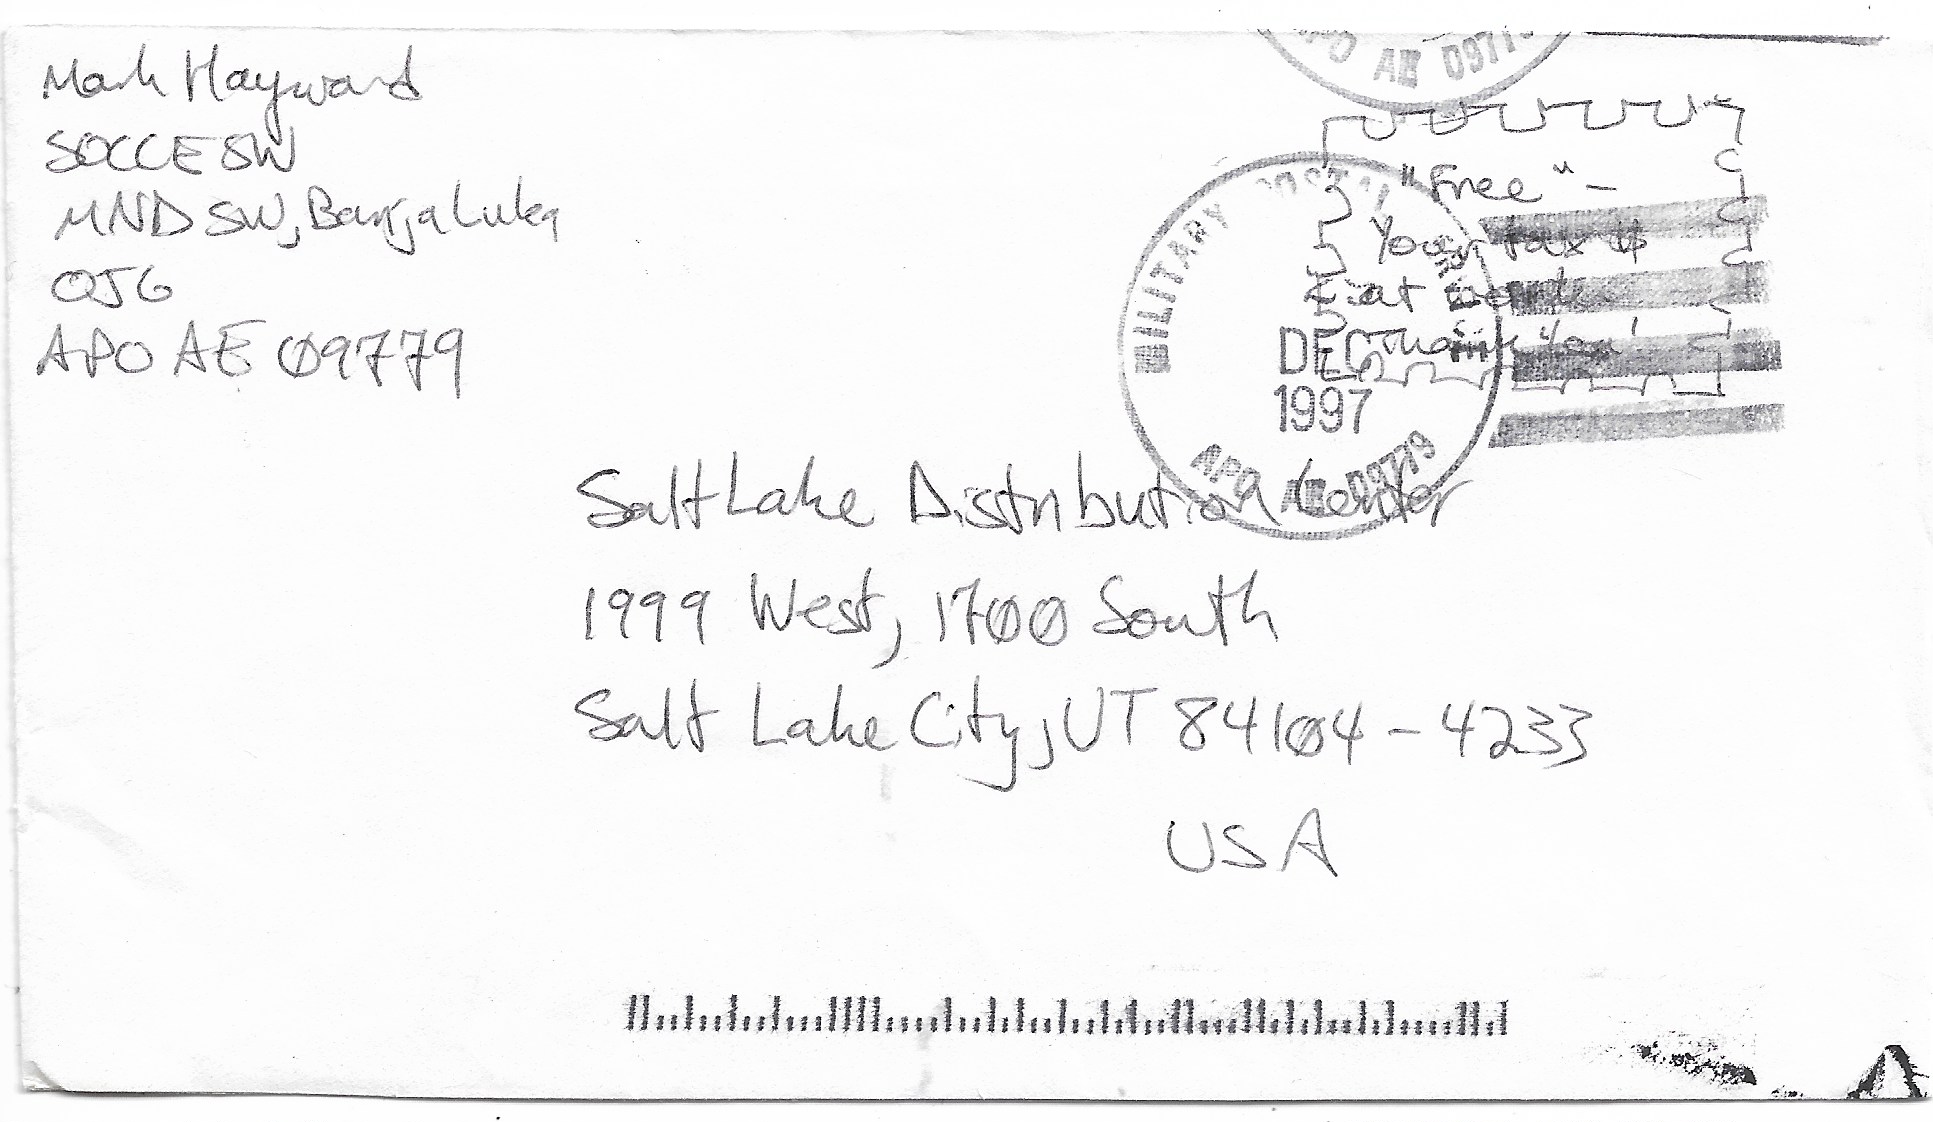 Mark Hayward
SOCCE SW
MND SW, Banja Luka
OJG
APO AE 09779
APO AE 0977
"Free" -
Your tax $
at work.
Thank You!
MILITARY POSTAL
DEC
1997
APO AE 09779
Salt Lake Distribution Center
1999 West, 1700 South
Salt Lake City, UT 84104-4233
USA